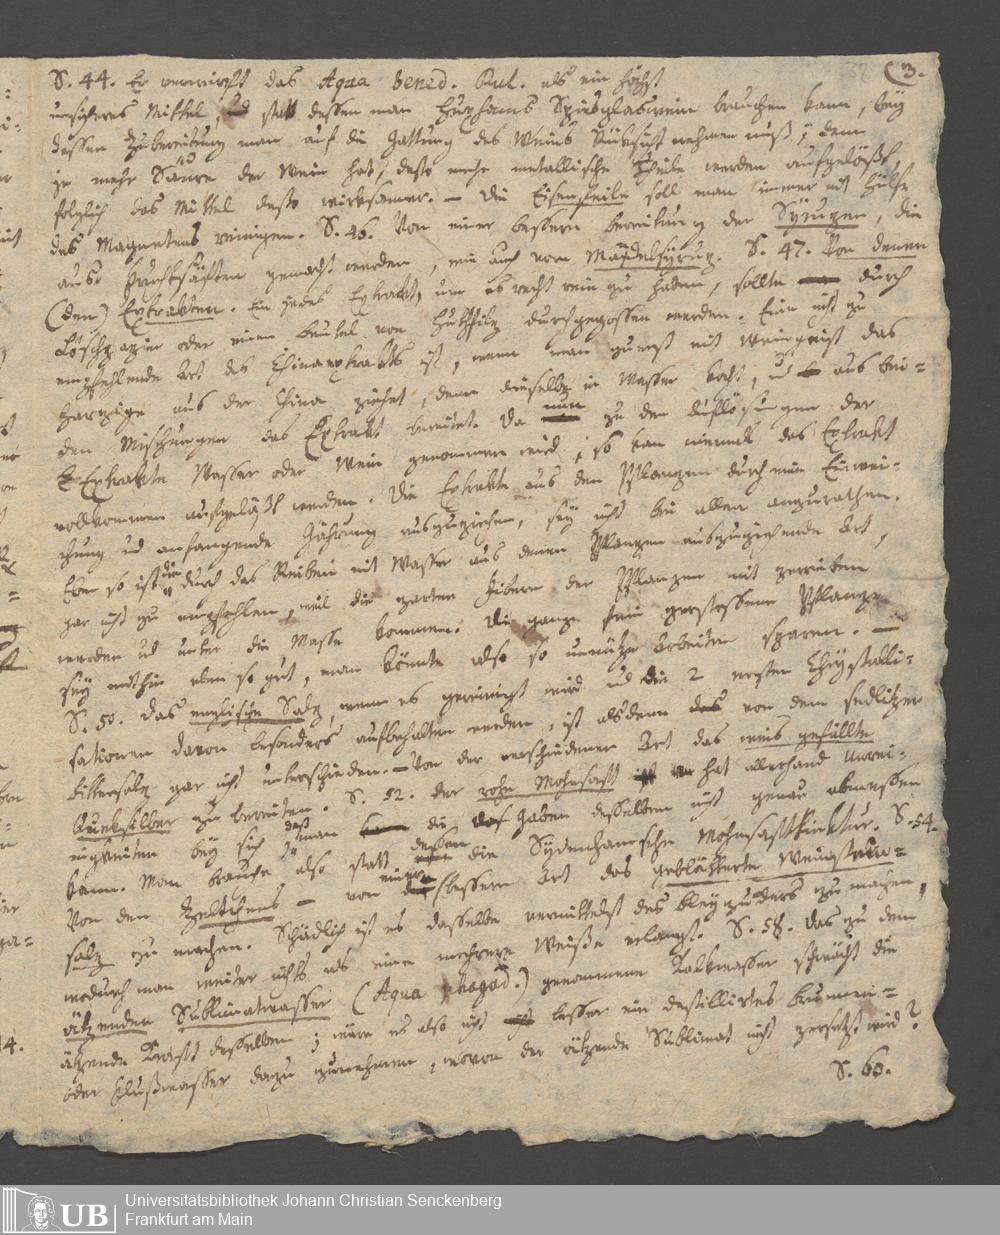 32 (3.
S. 44. Er verwirft das Aqua bened. Rul. als ein höchst
unsicheres Mittel, statt dessen man Huxhams Spiesglaswein brauchen kann, bey
dessen Zubereitung man auf die Gattung des Weins Rüksicht nehmen muß; denn
je mehr Säure der Wein hat, desto mehr metallische Theile werden aufgelößt,
folglich das Mittel desto wirksamer. — Die Eisenfeile soll man immer mit Hülfe
des Magnetens reinigen. S. 46. Von einer bessern bereitung der Syrupen, die
aus Fruchtsäften gemacht werden, wie auch vom Mandelsyrup. S. 47. Von denen
(den) Extrakten. Ein jedes Extrakt, um es recht rein zu haben, sollte durch
Löschpapier oder einen beutel von Huthfilz durchgegossen werden. Eine nicht zu
empfehlende Art des Chinaextrakts ist, wenn man zuerst mit Weingeist das
harzige aus der China ziehet, denn dieselbe in Wasser kocht, ud aus bei-
den Mischungen das Extrakt bereitet. Da zu den Auflösungen der
Extrakte Wasser oder Wein genommen wird, so kan niemals das Extrakt
vollkommen aufgelößt werden. Die Extrakte aus den Pflanzen durch eine Einwei-
chung ud anfangende Gährung auszuziehen, sey nicht bei allen anzurathen.
Eben so ist die durch das Reiben mit Wasser aus denen Pflanzen auszuziehende Art,
gar nicht zu empfehlen, weil die zarten Fibern der Pflanzen mit zerrieben
werden ud unter die Masse kommen. Die ganze fein zerstossene Pflanze
sey mithin eben so gut, man könnte also so unnütze Arbeiten sparen. —
S. 50. Das englische Salz, wenn es gereiniget wird ud die 2 ersten Chrystalli-
sationen davon besonders aufbehalten werden, ist alsdenn von dem sedlitzer
bittersalz gar nicht unterschieden. — Von der verschiedenen Art das weis gefällte
Queksilber zu bereiten. S. 52. Der rohe Mohnsaft hat allerhand Unrei-
nigkeiten bey sich, daß man die Gaben desselben nicht genau abmessen
kann. Man brauche also statt dessen die Sydenhamsche Mohnsafttinktur. S. 54.
Von den Zeltchens — von einer bessern Art das geblätterte Weinstein-
salz zu machen. Schädlich ist es dasselbe vermittelst des bleyzuckers zu machen,
wodurch man weiter nichts als eine mehrere Weiße erlangt. S. 58. Das zu dem
ätzenden Sublimatwasser (Aqua phagad.) genommene Kalkwasser schwächt die
ätzende Kraft desselben; wäre es also nicht besser ein destillirtes brunnen-
oder Flußwasser dazu zunehmen, wovon der ätzende Sublimat nicht zersetzt wird?
S. 60.
UB
Universitätsbibliothek Johann Christian Senckenberg
Frankfurt am Main